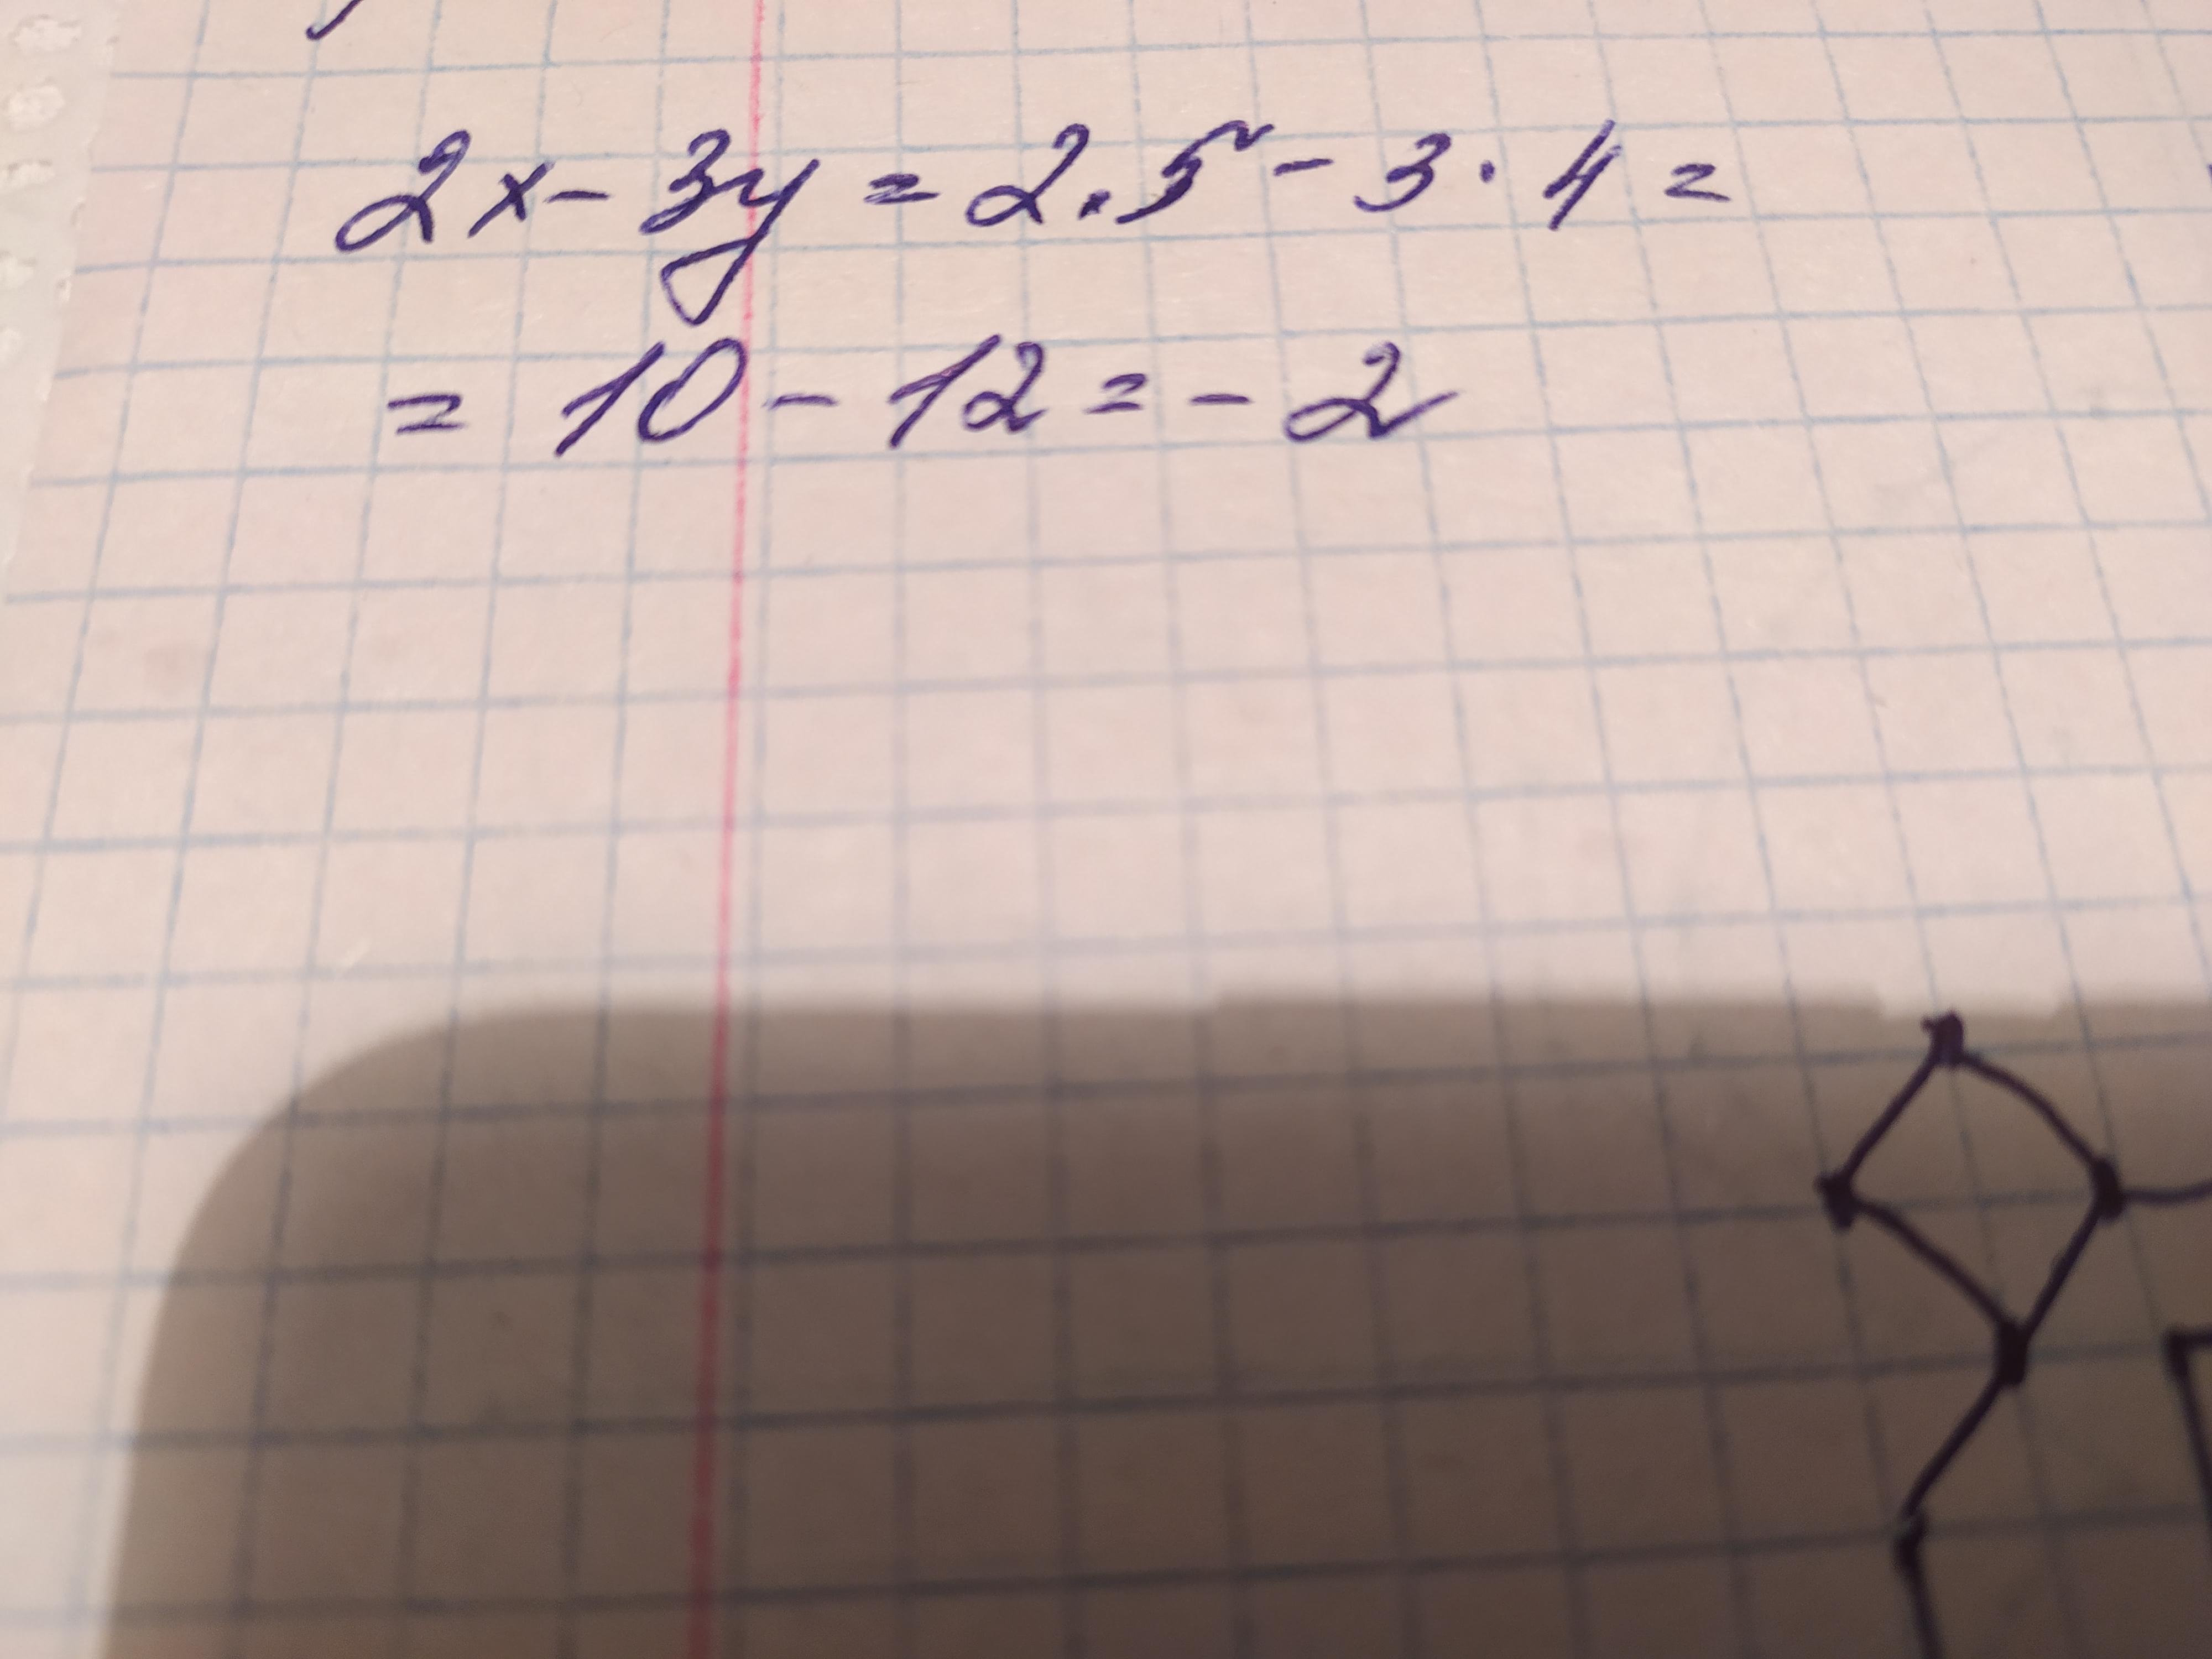 2x - 3y = 2 · 5 - 3 · 4 =
= 10 - 12 = - 2